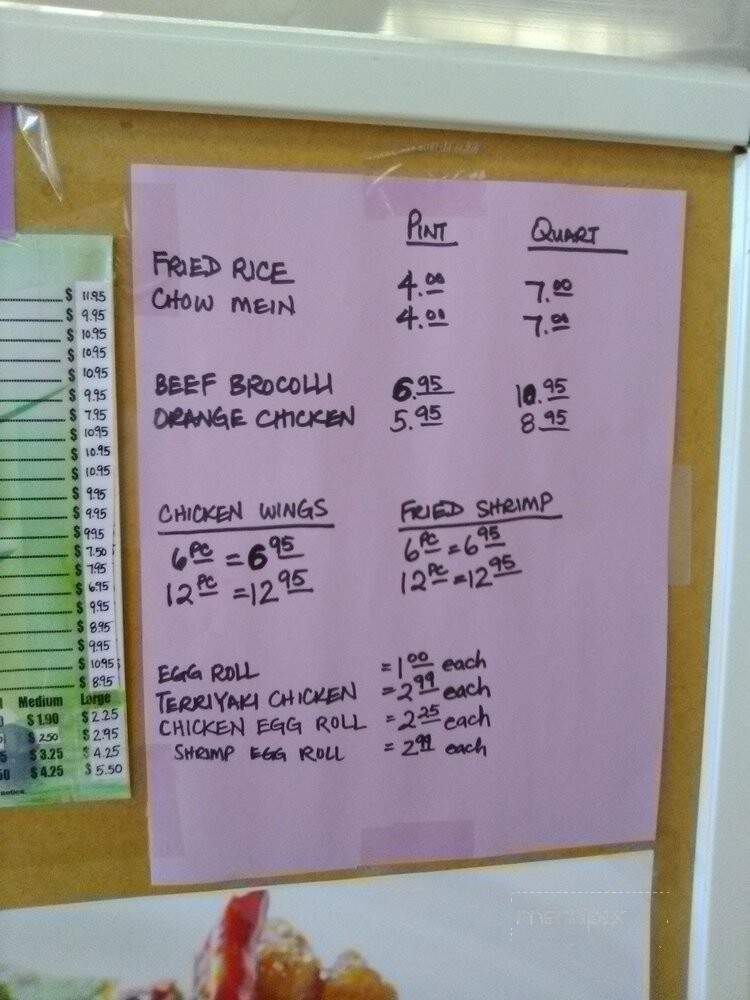 PINT QUART
FRIED RICE 4.00 7.00
CHOW MEIN 4.00 7.00
BEEF BROCOLLI 6.95 10.95
ORANGE CHICKEN 5.95 8.95
CHICKEN WINGS
6 PC = 6 95
12 PC = 12 95
FRIED SHRIMP
6 PC = 6 95
12 PC = 12 95
EGG ROLL = 1 00 each
TERRIYAKI CHICKEN = 2 99 each
CHICKEN EGG ROLL = 2 25 each
SHRIMP EGG ROLL = 2 99 each
$ 11.95
$ 9.95
$ 10.95
$ 10.95
$ 10.95
$ 9.95
$ 7.95
$ 10.95
$ 10.95
$ 10.95
$ 9.95
$ 9.95
$ 9.95
$ 7.50
$ 7.95
$ 6.95
$ 9.95
$ 8.95
$ 9.95
$ 10.95
$ 8.95
Medium Large
$ 1.90 $ 2.25
$ 2.50 $ 2.95
$ 3.25 $ 4.25
$ 4.25 $ 5.50
menupix